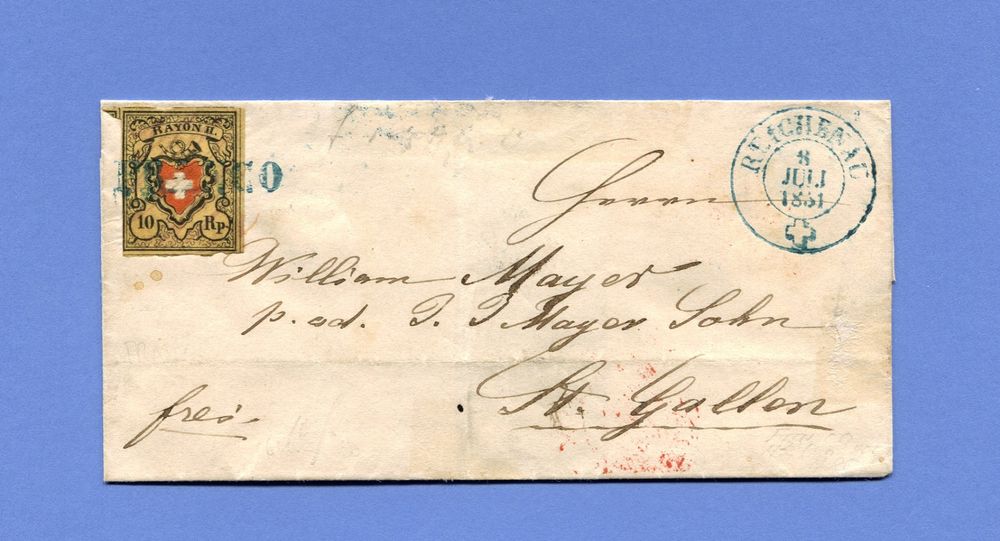 RAYON II.
10 Rp.
REICHENAU
8
JULI
1851
Herrn
William Mayer
p. ad. J. J. Mayer Sohn
St. Gallen
frei.